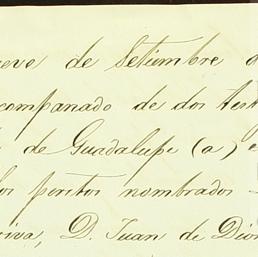 de Setiembre
acompañado de dos test
de Guadalupe (a) e
los peritos nombrados
riva, D. Juan de Dio